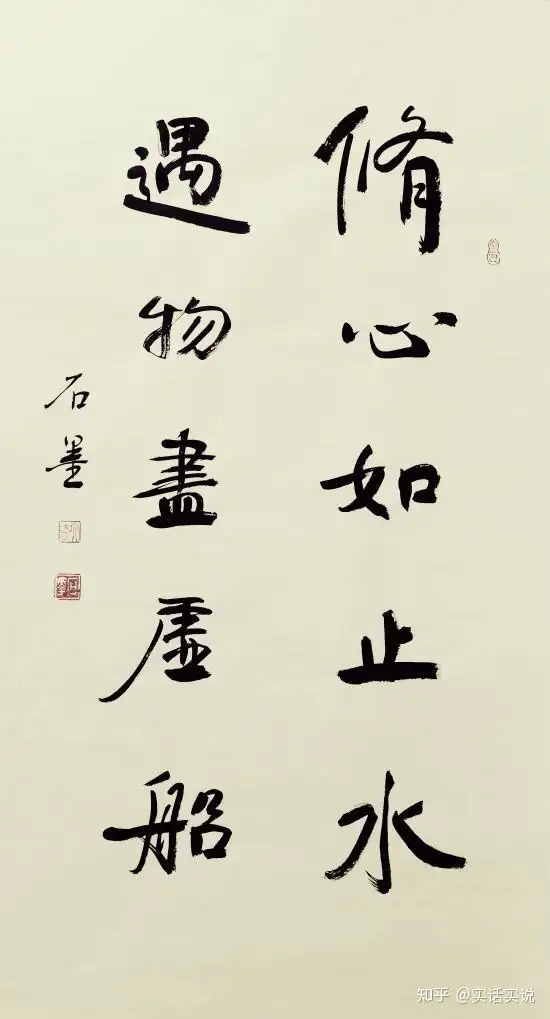 脩心如止水
遇物盡虛船
石墨
知乎 @实话实说